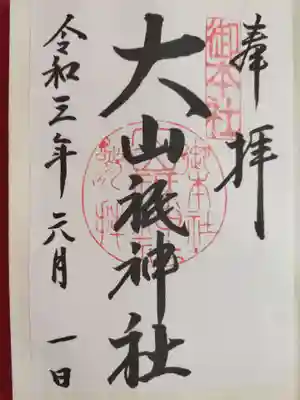 奉拝
御本社
大山祇神社
令和三年 六月 一日